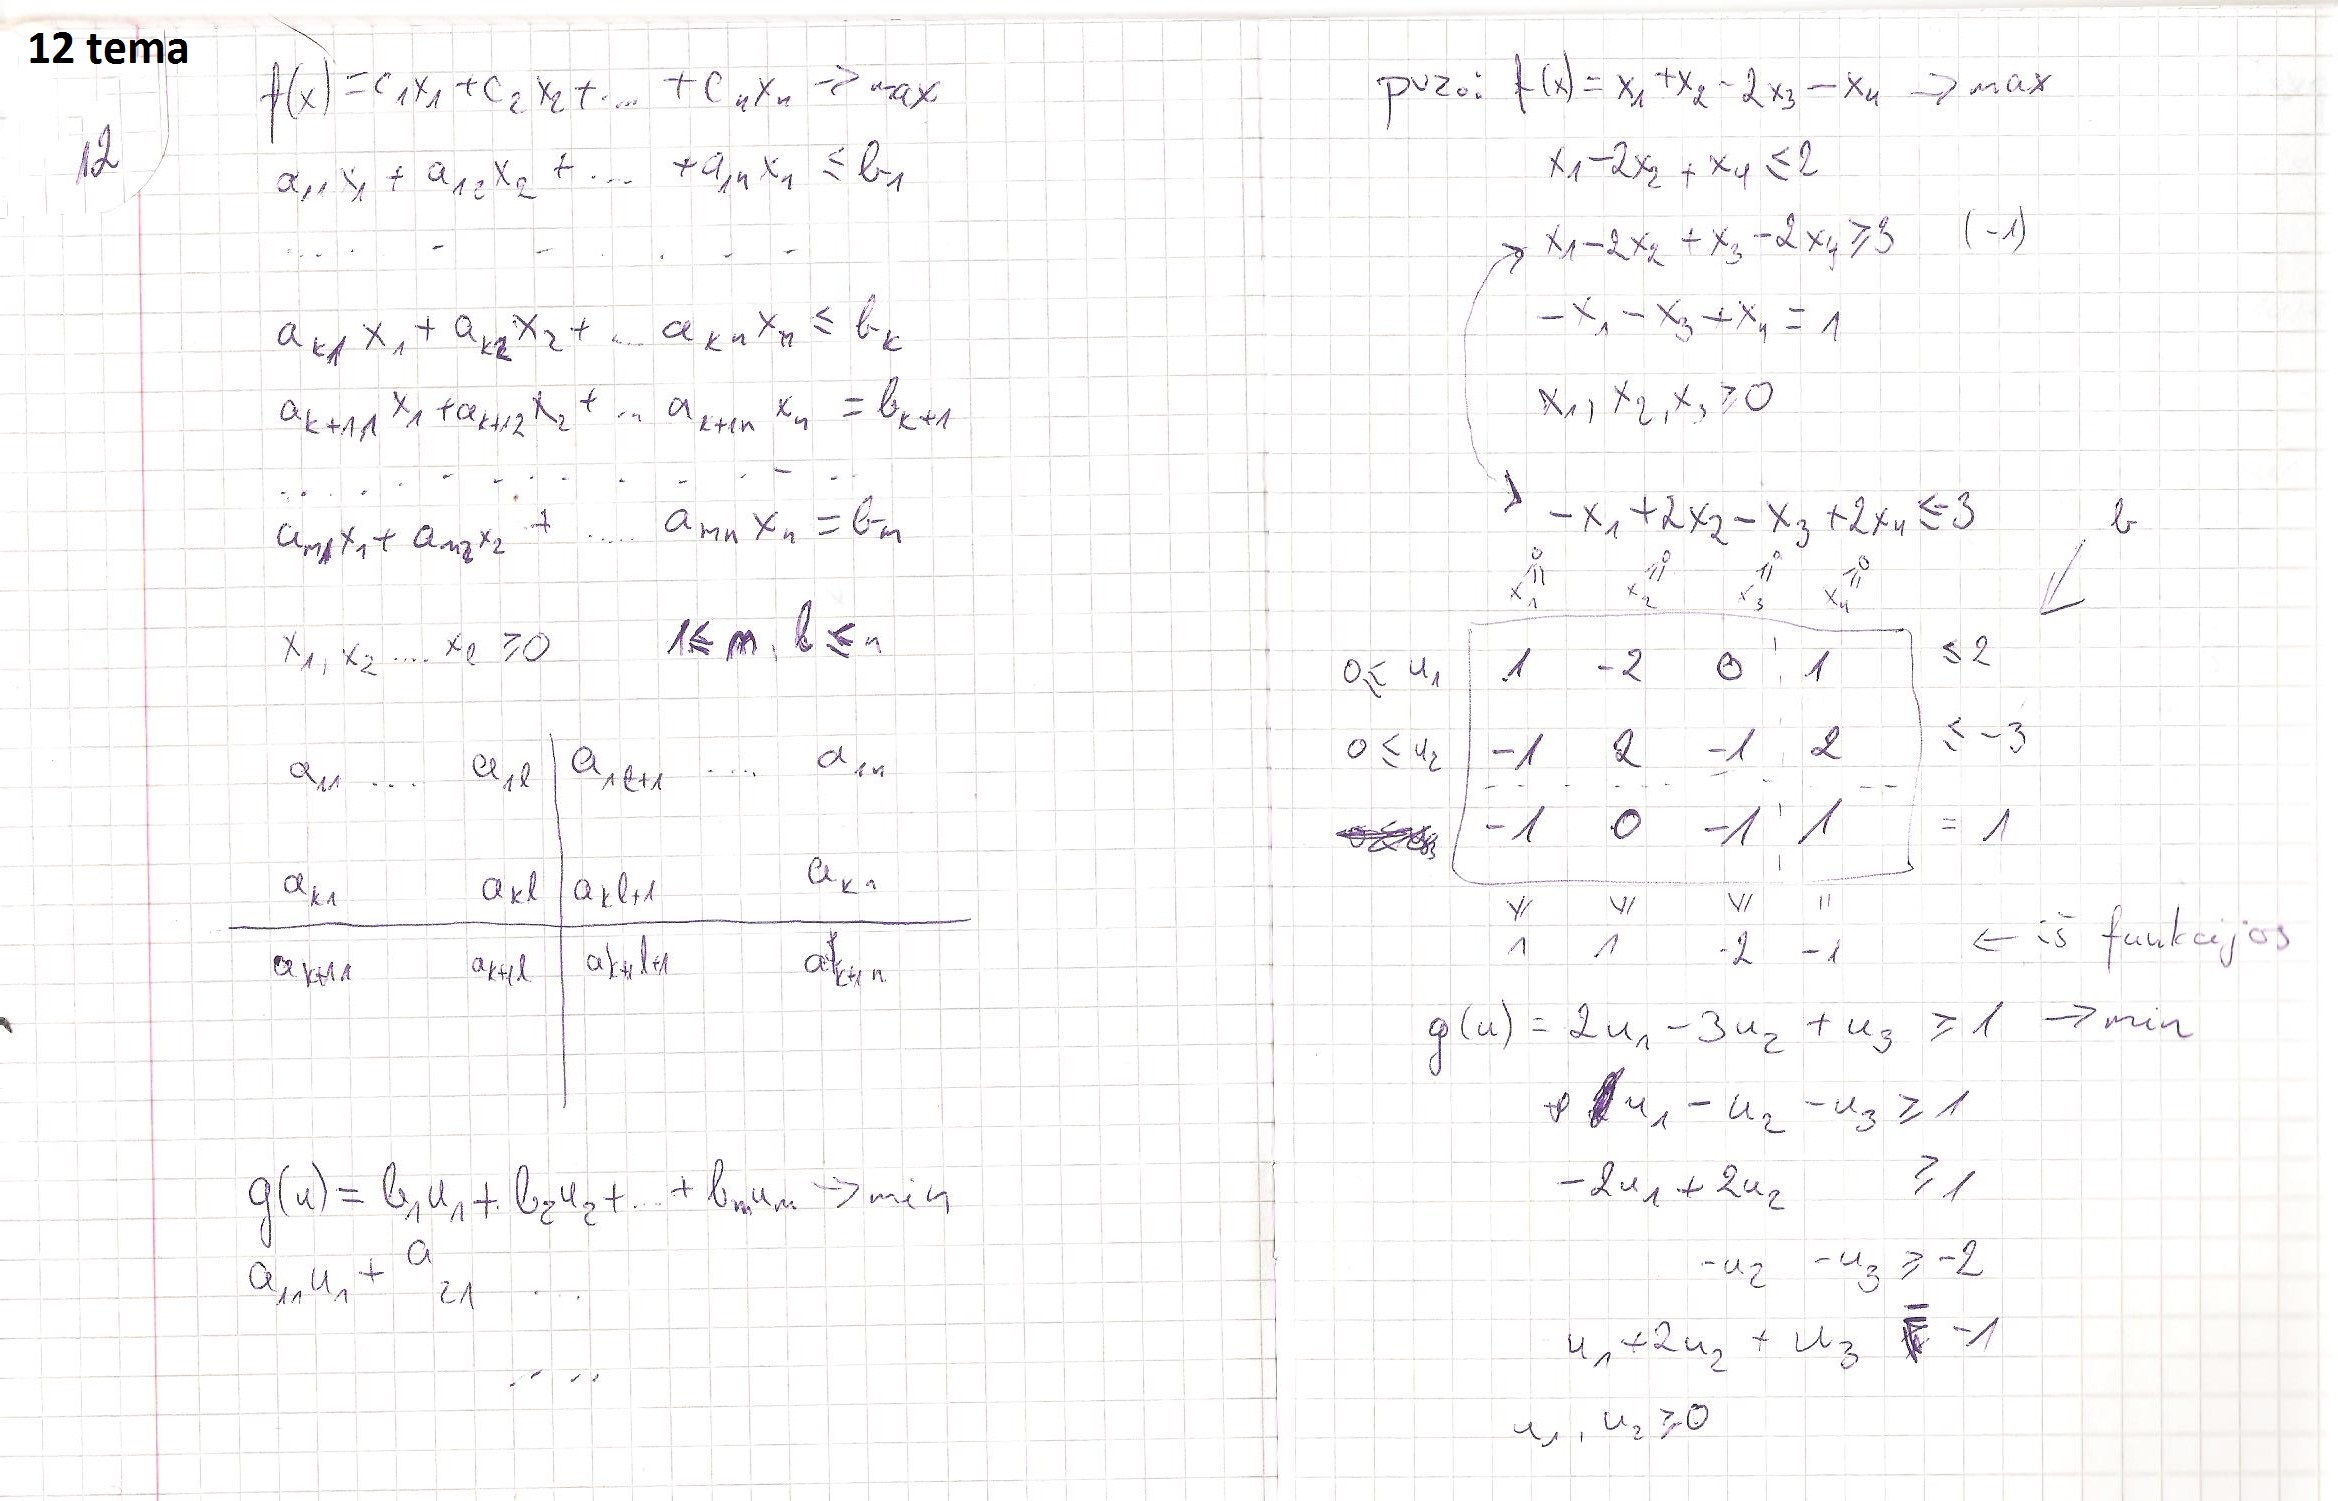 12 tema
12
f(x) = c₁x₁ + c₂x₂ + ... + cₙxₙ → max
a₁₁x₁ + a₁₂x₂ + ... + a₁ₙxₙ ≤ b₁
.... - - - . - -
aₖ₁x₁ + aₖ₂x₂ + ... aₖₙxₙ ≤ bₖ
aₖ₊₁,₁x₁ + aₖ₊₁₂x₂ + ... aₖ₊₁ₙ xₙ = bₖ₊₁
.. . . . - - - . - - ..
aₘ₁x₁ + aₘ₂x₂ + .... aₘₙxₙ = bₘ
x₁, x₂ .... xₗ ≥ 0 1 ≤ m, l ≤ n
a₁₁ .... a₁ₗ | a₁ₗ₊₁ .... a₁ₙ
aₖ₁ aₖₗ | aₖₗ₊₁ aₖₙ
aₖ₊₁₁ aₖ₊₁ₗ | aₖ₊₁ₗ₊₁ aₖ₊₁ₙ
g(u) = b₁u₁ + b₂u₂ + ... + bₘuₘ → min
a₁₁u₁ + a₂₁ ...
.. ..
pvz.: f(x) = x₁ + x₂ - 2x₃ - x₄ → max
x₁ - 2x₂ + x₄ ≤ 2
x₁ - 2x₂ + x₃ - 2x₄ ≥ 3 (-1)
-x₁ - x₃ + x₄ = 1
x₁, x₂, x₃ ≥ 0
-x₁ + 2x₂ - x₃ + 2x₄ ≤ -3 b
x₁ x₂ x₃ x₄
0 ≤ u₁ 1 -2 0 1 ≤ 2
0 ≤ u₂ -1 2 -1 2 ≤ -3
-1 0 -1 1 = 1
1 1 -2 -1 ← iš funkcijos
g(u) = 2u₁ - 3u₂ + u₃ ≥ 1 → min
u₁ - u₂ - u₃ ≥ 1
-2u₁ + 2u₂ ≥ 1
-u₂ - u₃ ≥ -2
u₁ + 2u₂ + u₃ = -1
u₁, u₂ ≥ 0